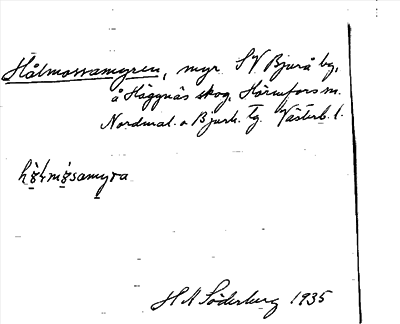 Hålmossamyren, myr SV Bjurå by,
å Häggnäs skog, Hörnefors sn.
Nordmal. o Bjurh. Tg. Västerb. l.
hö̀lmósamyra
H A Söderberg 1935